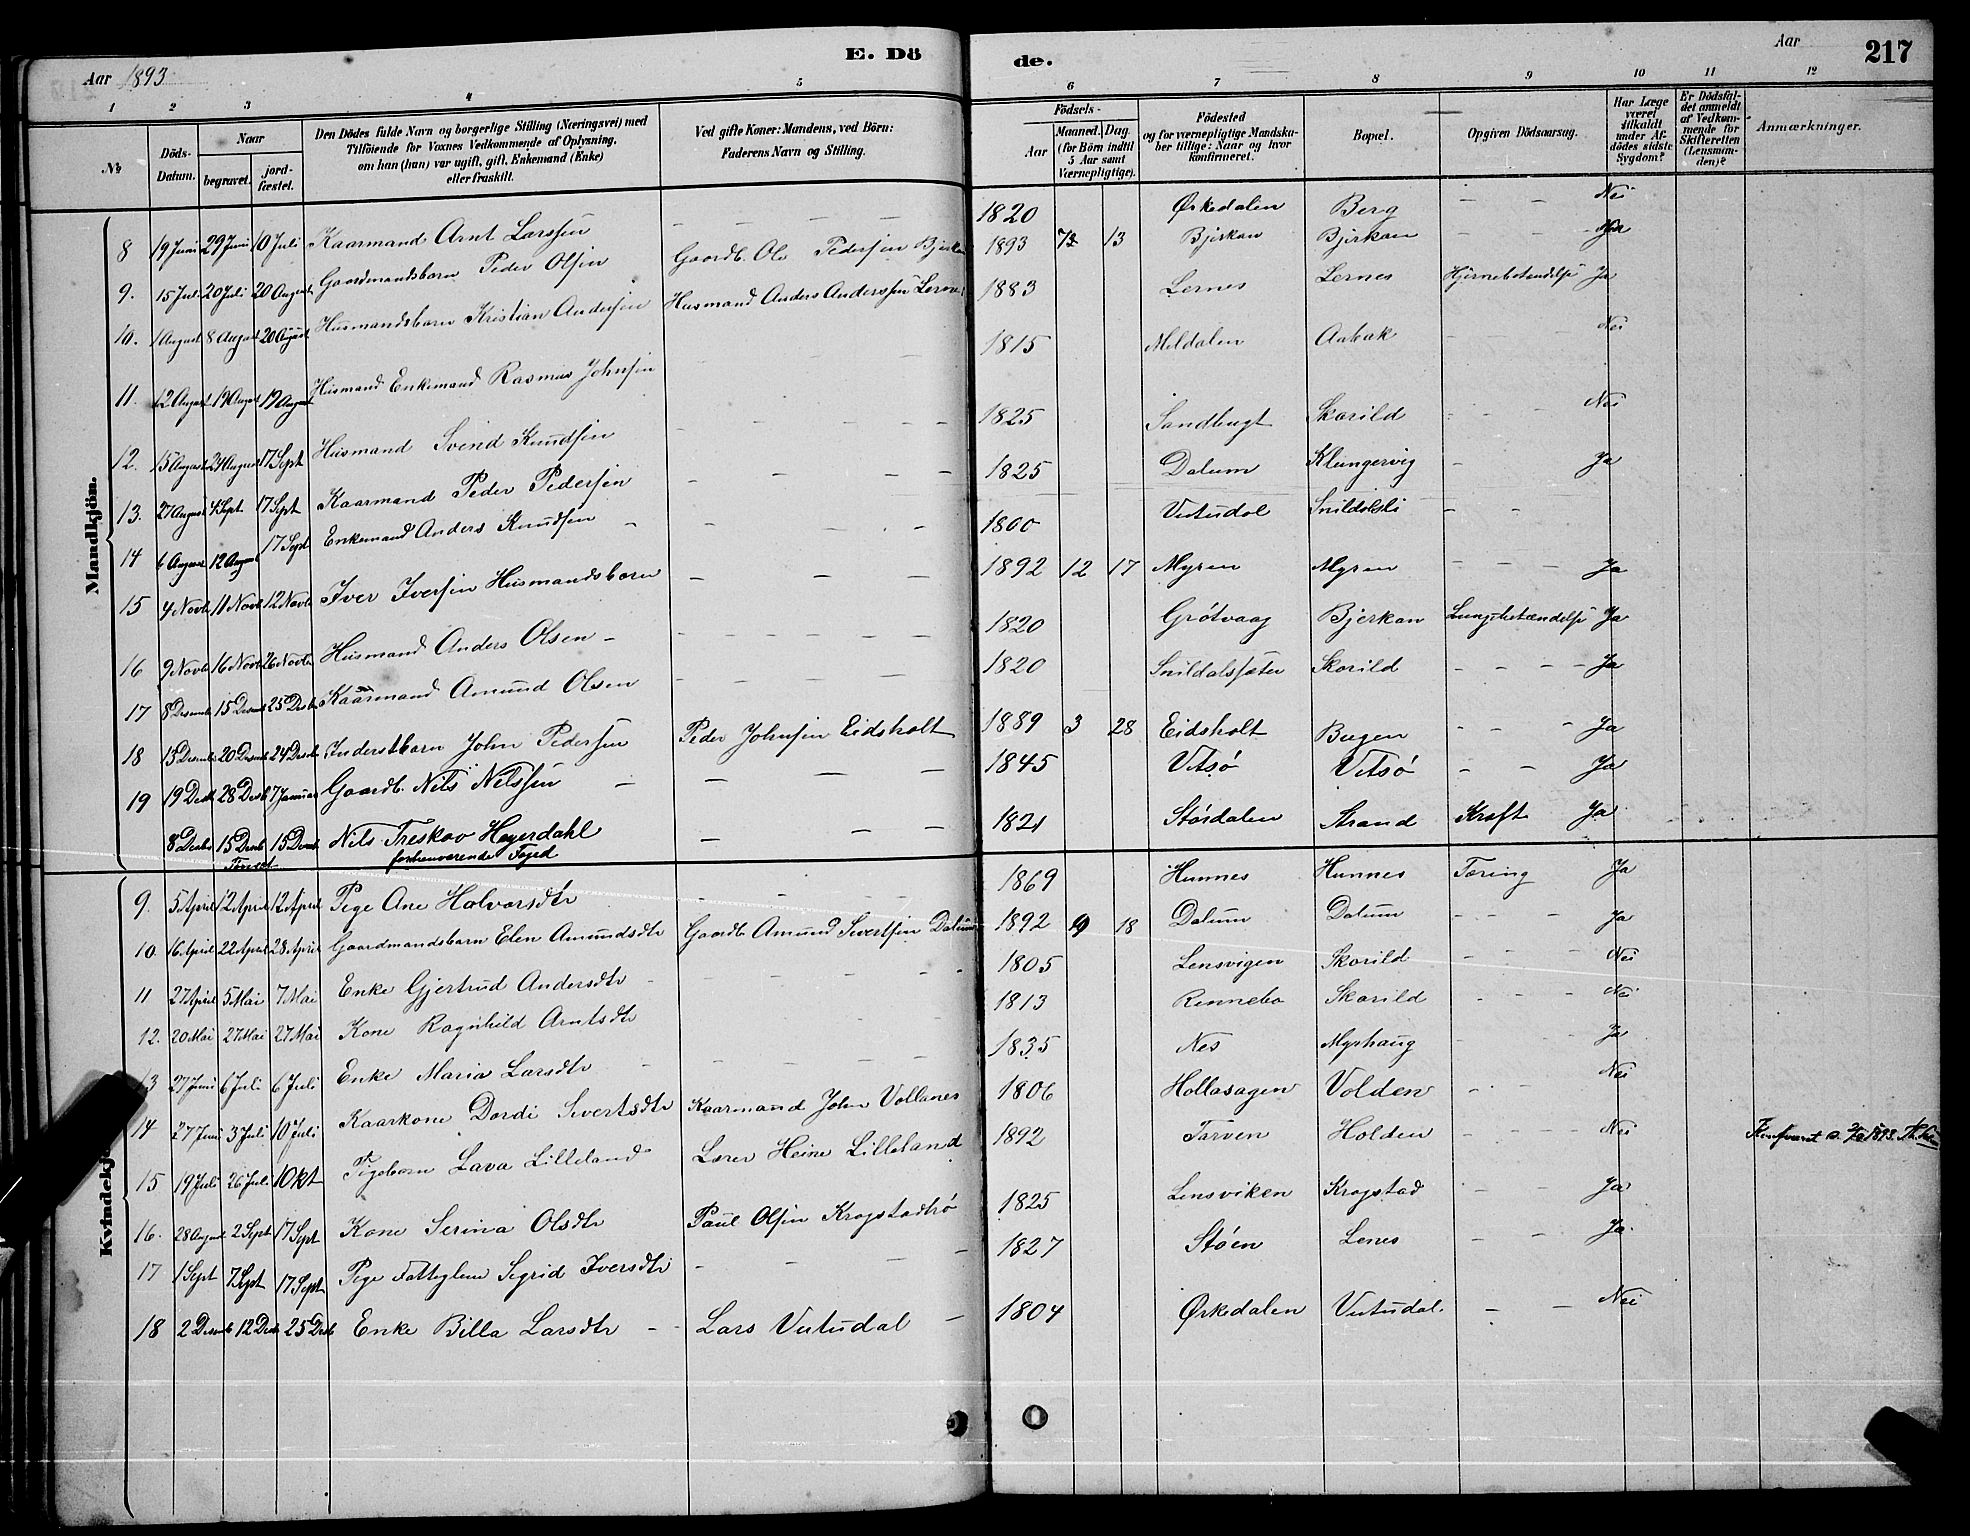 E. Döde.
217
Aar 1893
Aar
1 2 3 4 5 6 7 8 9 10 11 12
№
Döds-Datum.
Naar
begravet.
jordfæstet.
Den Dödes fulde Navn og borgerlige Stilling (Næringsvei) med Tilföiende for Voxnes Vedkommende af Oplysning, om han (hun) var ugift, gift, Enkemand (Enke) eller fraskilt.
Ved gifte Koner: Mandens, ved Börn: Faderens Navn og Stilling.
Födsels-
Aar
Maaned. Dag. (for Börn indtil 5 Aar samt Værnepligtige).
Födested og for værnepligtige Mandskaber tillige: Naar og hvor konfirmeret.
Bopæl.
Opgiven Dödsaarsag.
Har Læge været tilkaldt under Afdödes sidste Sygdom?
Er Dödsfaldet anmeldt af Vedkommende for Skifteretten (Lensmanden)?
Anmærkninger.
Mandkjön.
8 19 Juni 29 Juni 10 Juli Kaarmand Arnt Larssen — — — — 1820 Ørkedalen Berg — — Nei
9. 15 Juli 20 Juli 20 August Gaardmandsbarn Peder Olsen Gaardb. Ole Pedersen Bjerkan 1893 13 Bjerkan Bjerkan — —
10. 1 August 8 August 20 August Husmandsbarn Kristian Andersen Husmand Anders Anderssen Lernes 1883 Lernes Lernes Hjernebetændelse Ja
11. 12 August 19 August 19 August Husmand Enkemand Rasmus Johnsen — 1815 Meldalen Aabak — — Nei
12. 15 August 24 August 17 Sept Husmand Svend Knudsen — — — 1825 Sandbugt Skarild — — — Nei
13. 27 August 4 Sept 17 Sept Kaarmand Peder Pedersen — — — 1825 Dalum Klungervig — — Ja
14 6 August 12 August 17 Sept Enkemand Anders Knudsen — — — 1800 Vutudal Snildalsli — —
15 4 Novb 11 Novb 12 Novb Iver Iversen Husmandsbarn — — — 1892 12 17 Myren Myren — — — Ja
16 9 Novb 16 Novb 26 Novb Husmand Anders Olsen — — — — 1820 Grøtvaag Bjerkan Lungebetændelse Ja
17 8 Desemb 15 Desemb 25 Desb Kaarmand Amund Olsen — — — 1820 Snildalssæter Skarild — — — Ja
18 15 Desemb 20 Desemb 24 Desbr Inderstbarn John Pedersen Peder Johnsen Eidsholt 1889 3 28 Eidsholt Bugen — — — Ja
19 19 Desb 28 Desb 7 Januar Gaardb. Nils Nilssen — — — — 1845 Vitsø Vitsø — — Ja
8 Desbr 15 Desb 15 Desmb Nils Treskov Heyerdahl — — — 1821 Størdalen Strand Kræft Ja
forhenværende Foged
Kvindekj
9. 5 April 12 April 12 April Pige Ane Halvorsdtr — — — 1869 Hunnes Hunnes Tæring Ja
10. 16 April 22 April 28 April Gaardmandsbarn Elen Amundsdtr Gaardb Amund Sivertsen Dalum 1892 9 18 Dalum Dalum — — — Ja
11 27 April 5 Mai 7 Mai Enke Gjertrud Andersdtr — — — 1805 Lensvigen Skarild — — — Nei
12. 20 Mai 27 Mai 27 Mai Kone Ragnhild Arntsdtr — — — 1813 Rennebo Skarild — — — Nei
13 27 Juni 6 Juli 6 Juli Enke Maria Larsdtr — — — — 1835 Nes Myrhaug — — Ja
14 27 Juni 3 Juli 10 Juli Kaarkone Dordi Sivertsdtr Kaarmand John Vollanes 1806 Hollasagen Volden — — — Nei
15 19 Juli 26 Juli 1 Okt Pigebarn Lava Lilleland Lærer Heine Lilleland 1892 Tarven Holden — — — Nei
16. 28 August 2 Sept 17 Sept Kone Serina Olsdtr Paul Olsen Krogstadtrø 1825 Lensviken Krogstad — — Ja
17 1 Sept 7 Sept 17 Sept Pige Fattiglem Sigrid Iversdtr — — — 1827 Støen Lenes — — Ja
18 2 Desmb 12 Desb 25 Desb Enke Billa Larsdtr — — Lars Vutudal — 1804 Ørkedalen Vutudal — — Nei